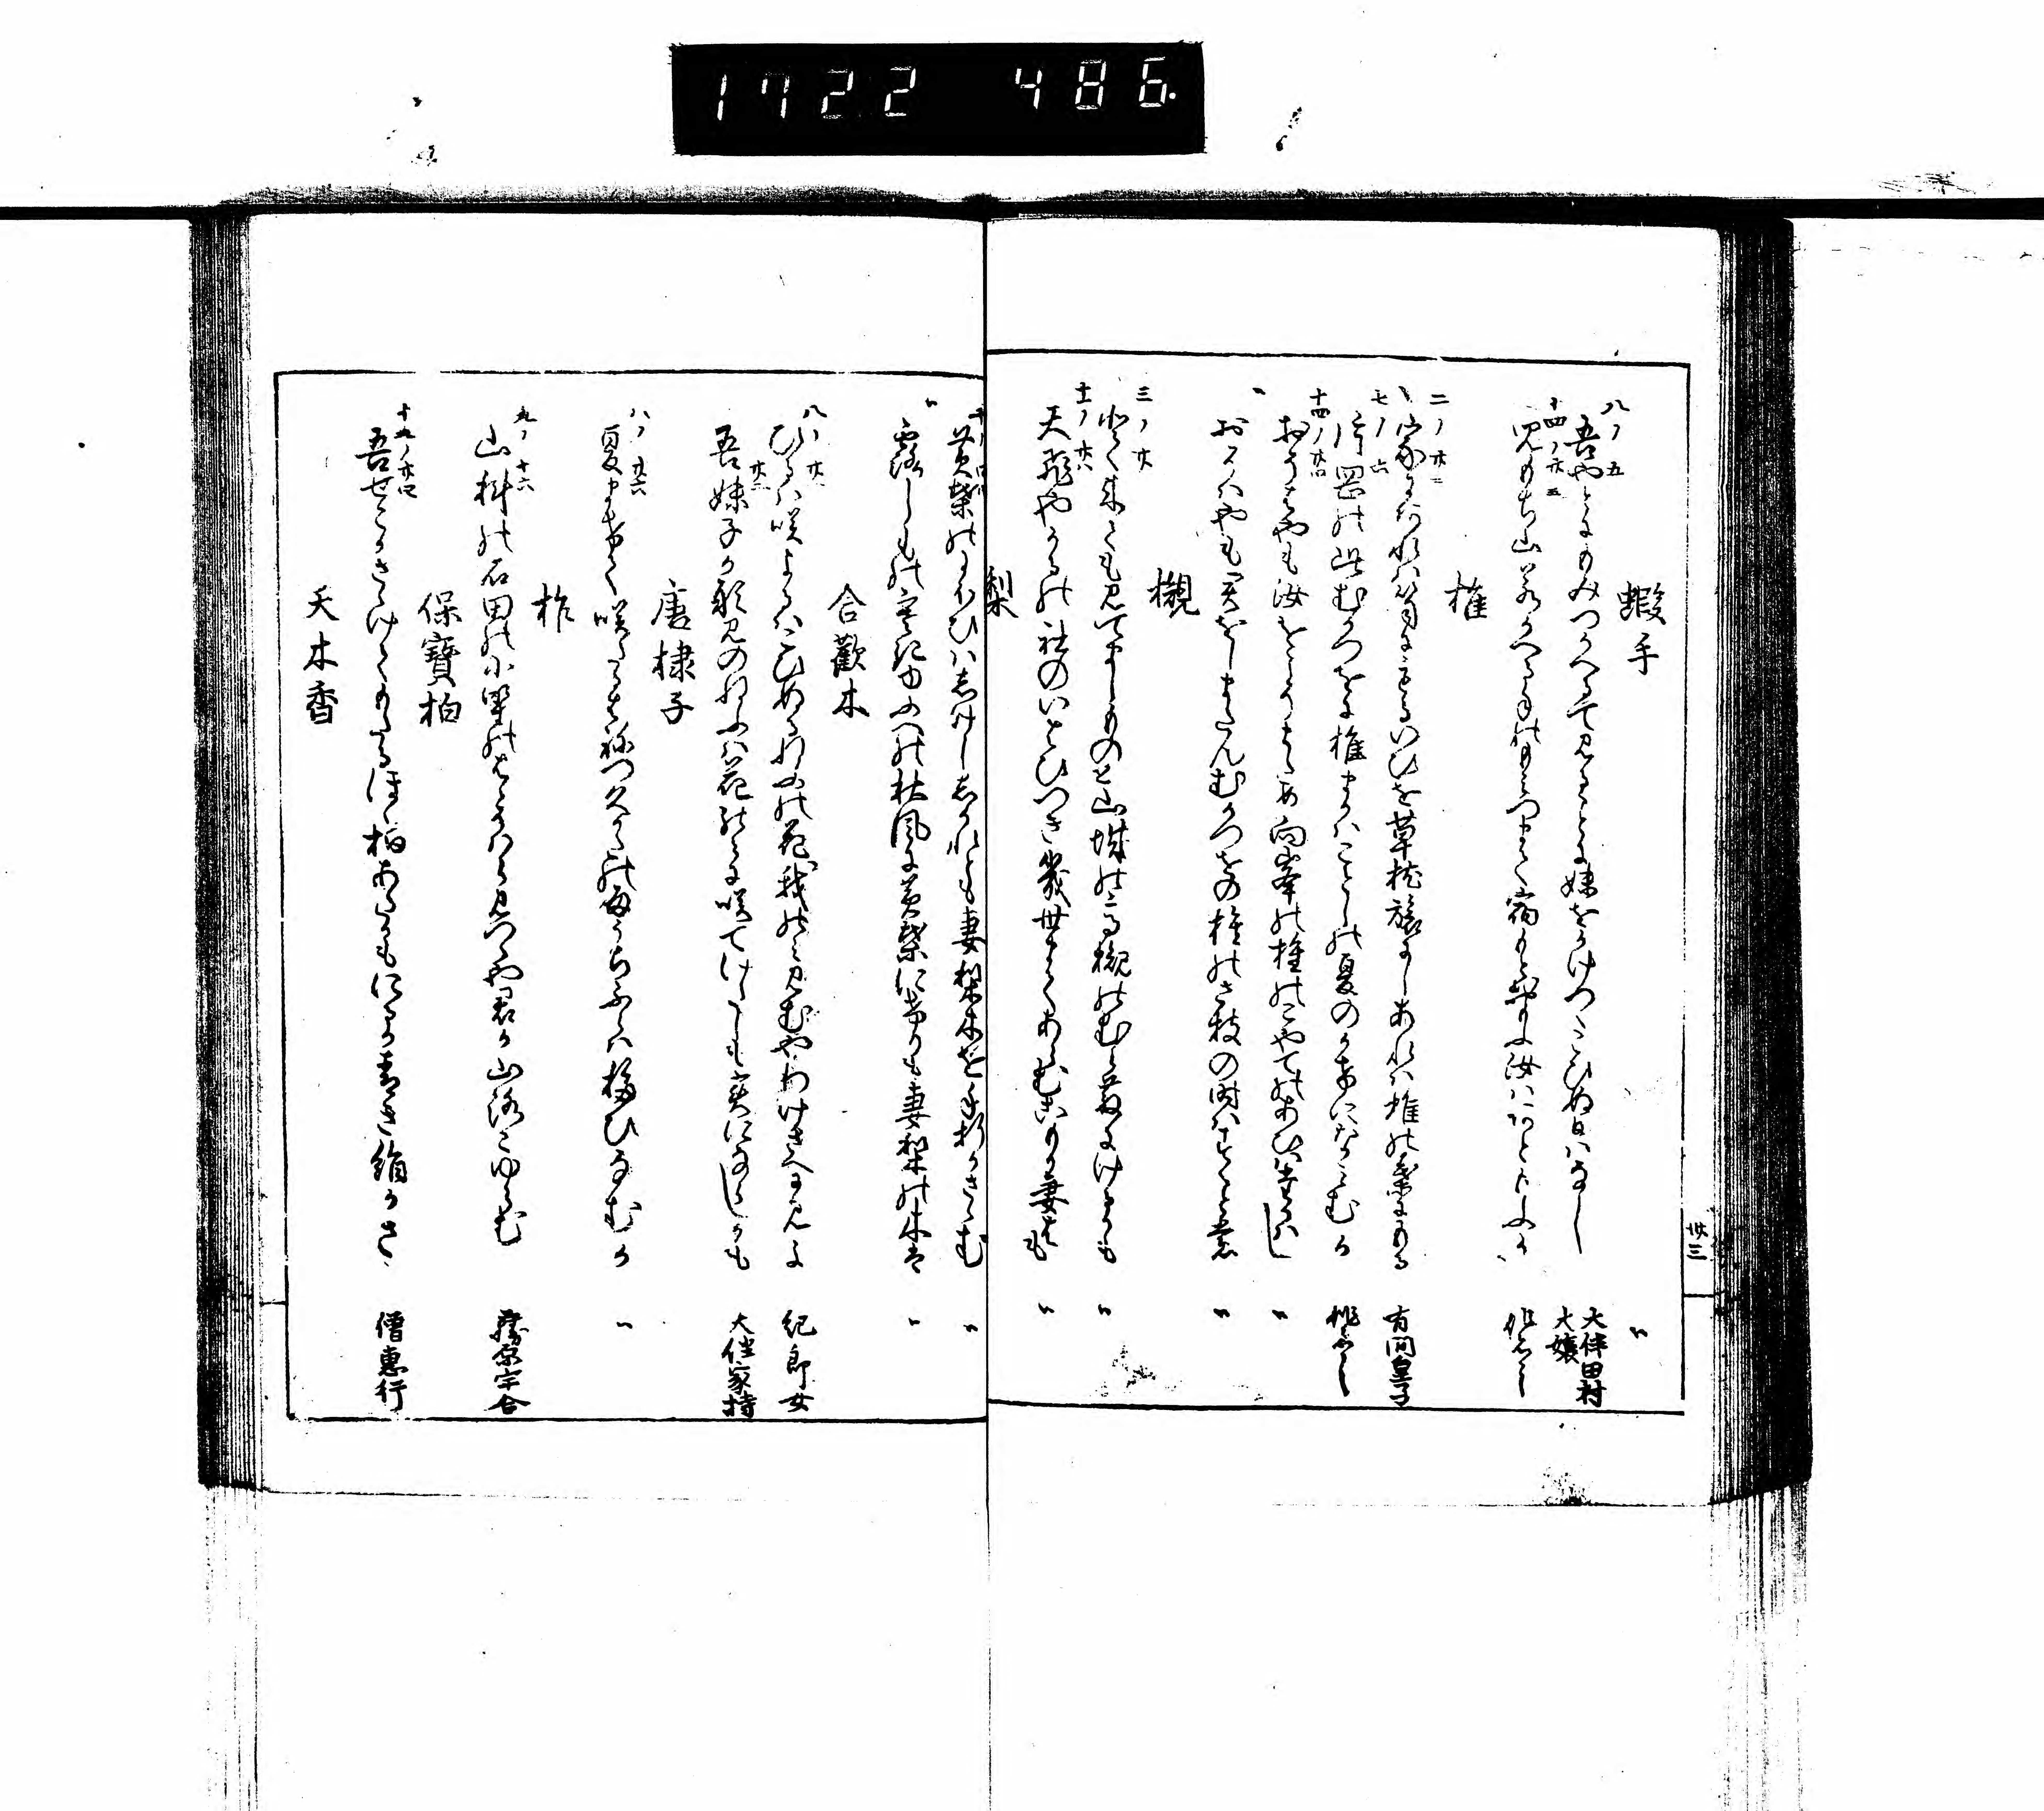 1722 486.
蝦手
〃
八ノ五
吾やとにもみつかへるて見ることに妹をかけつゝこひぬ日はなし
大伴田村大嬢
十四ノ廿五
児もち山若かへるての
まて
汝は
椎
二ノ廿二
家にあれは笥にもるいひを草枕旅にしあれは椎の葉にもる
有間皇子
七ノ六
片岡の此むかつをに椎まかはことしの夏のかけになみむか
十四ノ廿四
おそはやも汝をこそまため向峯の椎のこやてのあひはたかはし
〃
〃
おそはやも君をしまたんむかつをの椎のさ枝の時はすくとも
〃
槻
三ノ廿
とく来ても見てましものを山城の高槻のむら散にけるかも
〃
十一ノ廿八
天飛やかるの社のいはひつき幾世まてあらむこもり妻そも
〃
梨
黄葉のにほひはしけししかれとも妻梨木を手折かさゝむ
〃
〃
露しもの寒きゆふへの秋風に黄葉にけりも妻梨の木は
〃
合歓木
八ノ廿
ひるは咲よるはこひぬるねふの花我のみ見むやわけさへに見よ
紀郎女
廿二
吾妹子か形見のねふは花のみに咲てけたしも実にならしかも
大伴家持
唐棣子
八ノ廿六
夏まけて咲たるはねつ久かたの雨うちふらは移ひなむか
〃
柞
九ノ十六
山科の石田の小野のはゝそ原見つゝや君か山路こゆらむ
藤原宇合
保寶柏
十九ノ廿四
吾せこかさゝけてもたるほゝ柏あたかもにるか青き絹かさ
僧惠行
天木香
丗三